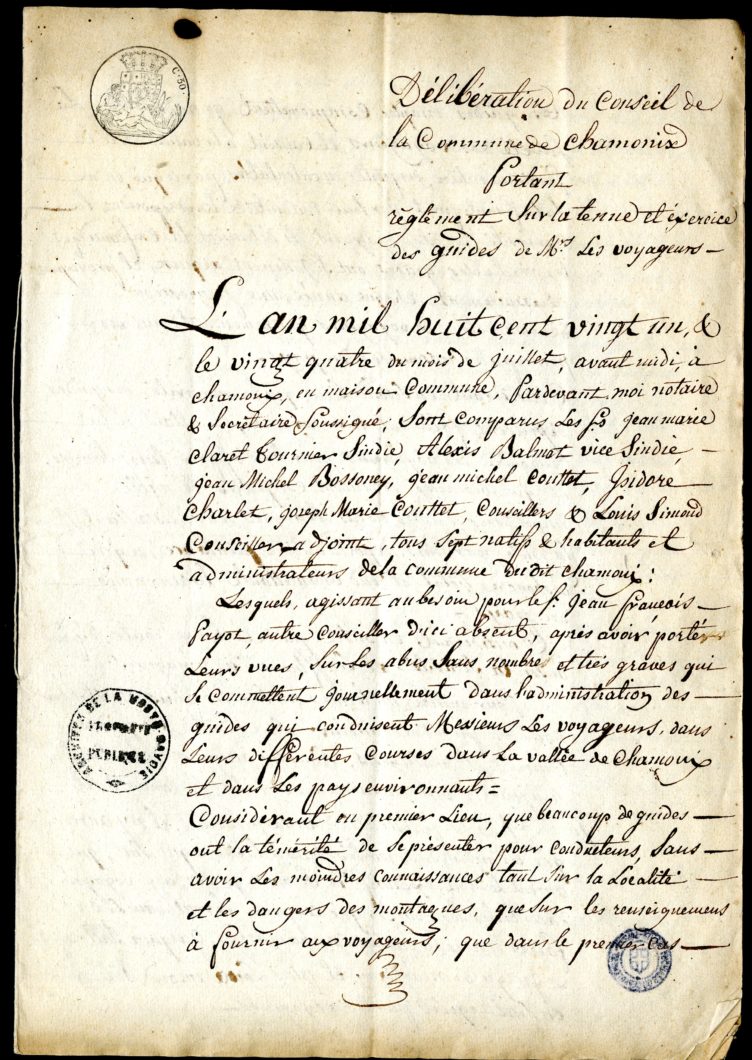 C. 50.
Délibération du Conseil de
la Commune de Chamonix
Portant
règlement sur la tenue et éxercice
des guides de Mrs. Les voyageurs —
L'an mil huit cent vingt un, &
le vingt quatre du mois de juillet, avant midi, à
chamonix, en maison Commune, Pardevant moi notaire
& Secrétaire Soussigné, Sont comparus Les Srs jean marie
Claret Tournier Sindic, Alexis Balmat vice Sindic, —
jean Michel Bossoney, jean michel Couttet, Isidore
Charlet, joseph Marie Couttet, Conseillers & Louis Simond
Conseiller adjoint, tous Sept natifs & habitants et
administrateurs de la commune dudit chamonix:
Lesquels, agissant au besoin pour le Sr. jean françois —
Payot, autre Conseiller d'ici absent, après avoir portés
Leurs vues, Sur Les abus Sans nombres et très graves qui
Se Commettent journellement dans l'administration des —
guides qui conduisent Messieurs Les voyageurs, dans
Leurs différentes courses dans La vallée de Chamonix
et dans Les pays environnants =
Considérant en premier Lieu, que beaucoup de guides —
ont la témérité de Se présenter pour conducteurs, Sans —
avoir Les moindres connaissances tout Sur la Localité —
et les dangers des montagnes, que sur les renseignemens
à fournir aux voyageurs; que dans le premier cas —
ARCHIVES DE LA HAUTE-SAVOIE
PROPRIÉTÉ
PUBLIQUE